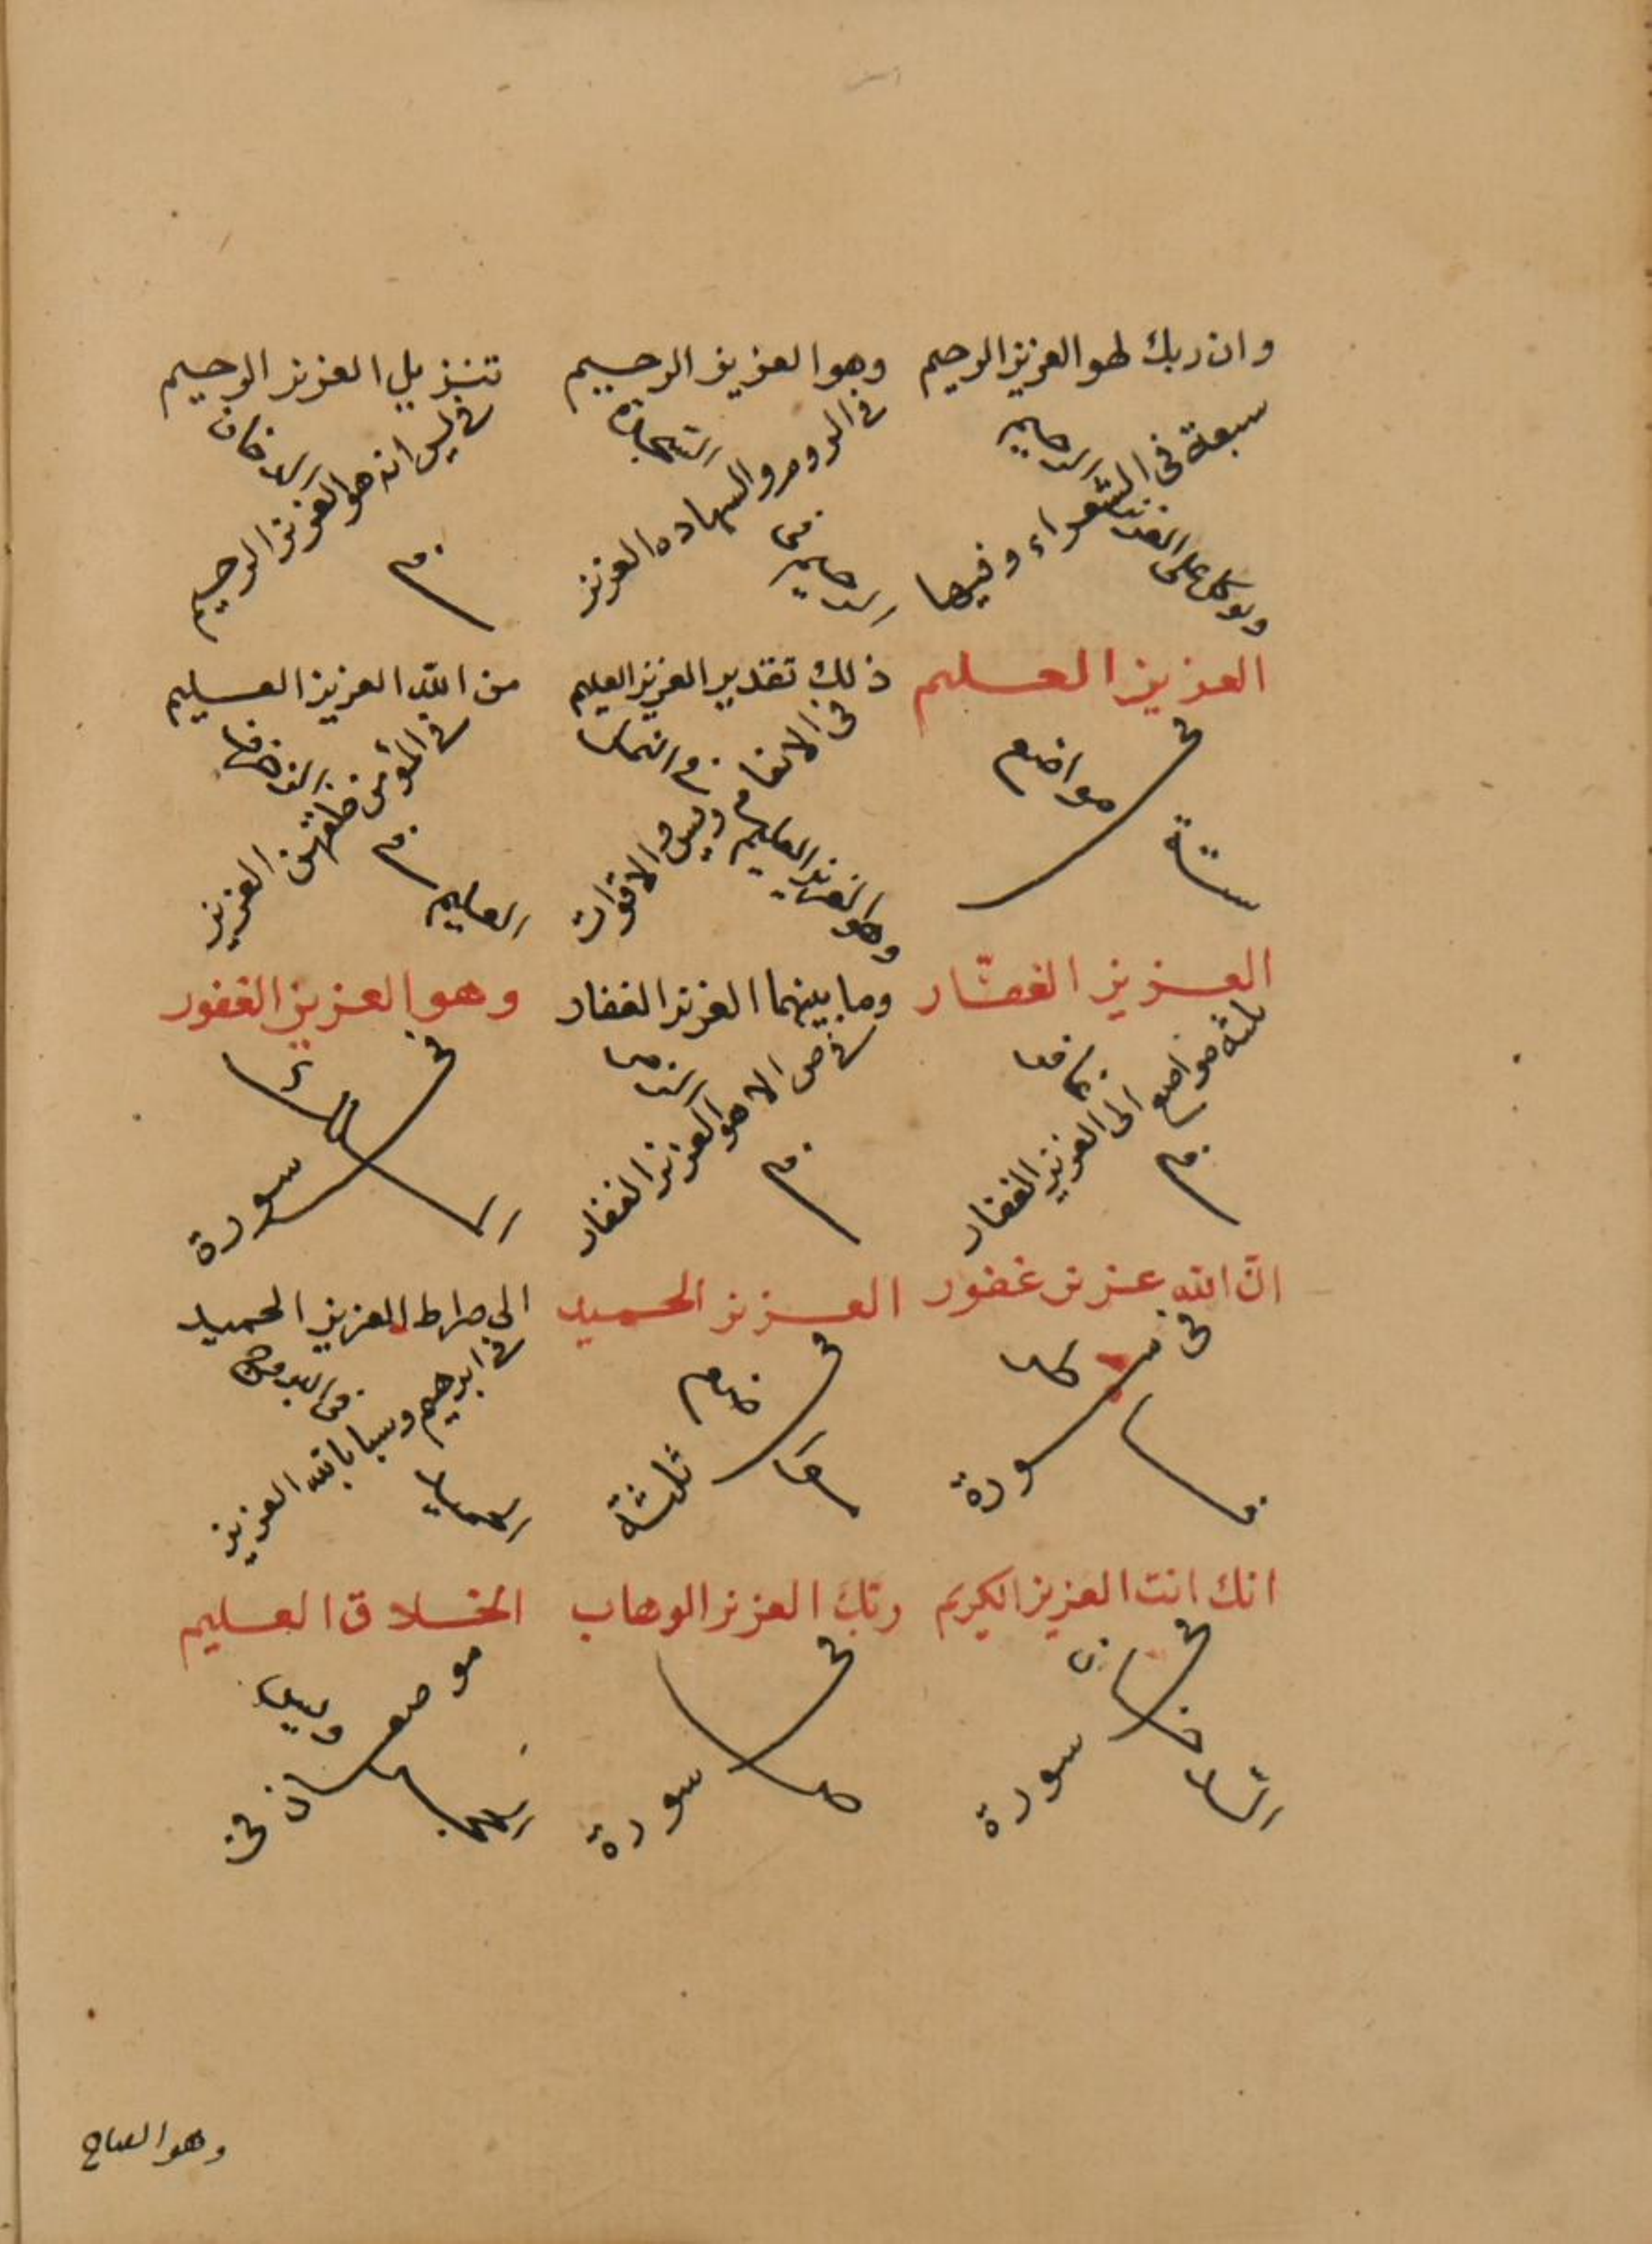 وان ربك لهو العزيز الرحيم
سبعة فى الشعراء وفيها
وتوكل على العزيز الرحيم
وهو العزيز الرحيم
فى الروم والسجاده العزيز
الرحيم فى
تنزيل العزيز الرحيم
فى يس انه هو العزيز الرحيم
فى الدخان
العزيز العليم
فى ستة مواضع
ذلك تقدير العزيز العليم
فى الانعام ويس والاقوات
وهو العزيز العليم فى النمل
من الله العزيز العليم
فى المؤمن خلقهن العزيز
العليم فى الزخرف
العزيز الغفار
ثلثة مواضع الى العزيز الغفار
فى
وما بينهما العزيز الغفار
فى ص الا هو العزيز الغفار
فى الزمر
وهو العزيز الغفور
فى سورة
الملك
ان الله عزيز غفور
فى سورة
العزيز الحميد
فى ثلثة مواضع
الى صراط العزيز الحميد
فى ابرهيم وسبا بالله العزيز
الحميد فى البروج
انك انت العزيز الكريم
فى سورة
الدخان
ربك العزيز الوهاب
فى سورة
ص
الخلاق العليم
موضعان فى
الحجر ويس